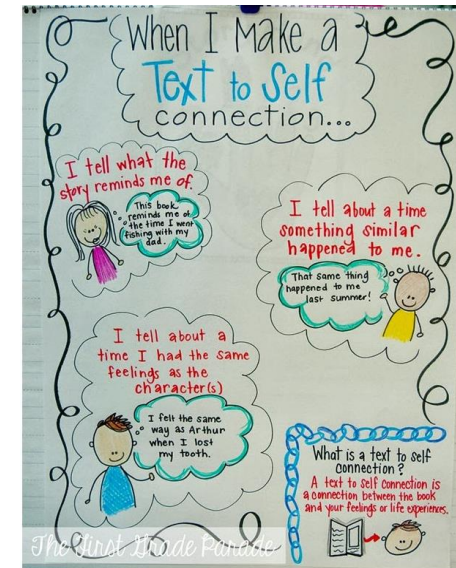 When I Make a
Text to Self
connection...
I tell what the
story reminds me of.
This book
reminds me of
the time I went
fishing with my
dad.
I tell about a time
something similar
happened to me.
That same thing
happened to me
last summer!
I tell about a
time I had the same
feelings as the
character(s)
I felt the same
way as Arthur
when I lost
my tooth.
What is a text to self
connection?
A text to self connection is
a connection between the book
and your feelings or life experiences.
The First Grade Parade